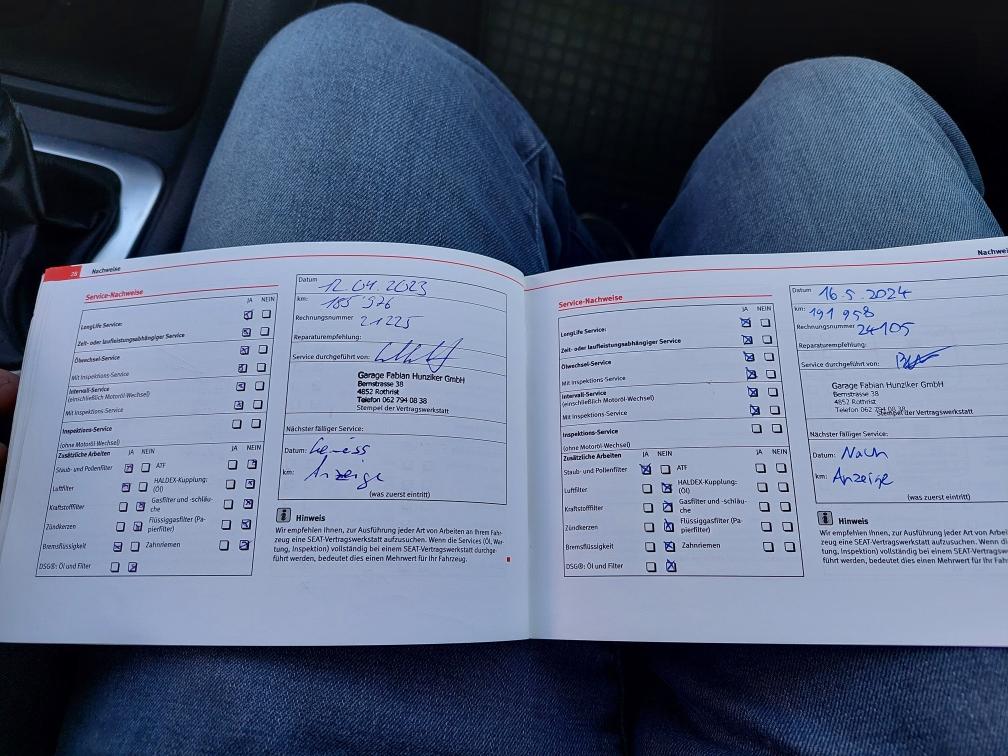 28 Nachweise
Service-Nachweise
JA NEIN
LongLife Service:
Zeit- oder laufleistungsabhängiger Service
Ölwechsel-Service
Mit Inspektions-Service
Intervall-Service
(einschließlich Motoröl-Wechsel)
Mit Inspektions-Service
Inspektions-Service
(ohne Motoröl-Wechsel)
Zusätzliche Arbeiten JA NEIN JA NEIN
Staub- und Pollenfilter ATF
Luftfilter HALDEX-Kupplung:
(Öl)
Kraftstofffilter Gasfilter und -schläu-
che
Zündkerzen Flüssiggasfilter (Pa-
pierfilter)
Bremsflüssigkeit Zahnriemen
DSG®: Öl und Filter
Datum 12.04.2023
km: 185'926
Rechnungsnummer 21225
Reparaturempfehlung:
Service durchgeführt von:
Garage Fabian Hunziker GmbH
Bernstrasse 38
4852 Rothrist
Telefon 062 794 08 38
Stempel der Vertragswerkstatt
Nächster fälliger Service:
Datum: Gemäss
km: Anzeige
(was zuerst eintritt)
Hinweis
Wir empfehlen Ihnen, zur Ausführung jeder Art von Arbeiten an Ihrem Fahr-
zeug eine SEAT-Vertragswerkstatt aufzusuchen. Wenn die Services (Öl, War-
tung, Inspektion) vollständig bei einem SEAT-Vertragswerkstatt durchge-
führt werden, bedeutet dies einen Mehrwert für Ihr Fahrzeug.
Service-Nachweise
JA NEIN
LongLife Service:
Zeit- oder laufleistungsabhängiger Service
Ölwechsel-Service
Mit Inspektions-Service
Intervall-Service
(einschließlich Motoröl-Wechsel)
Mit Inspektions-Service
Inspektions-Service
(ohne Motoröl-Wechsel)
Zusätzliche Arbeiten JA NEIN JA NEIN
Staub- und Pollenfilter ATF
Luftfilter HALDEX-Kupplung:
(Öl)
Kraftstofffilter Gasfilter und -schläu-
che
Zündkerzen Flüssiggasfilter (Pa-
pierfilter)
Bremsflüssigkeit Zahnriemen
DSG®: Öl und Filter
Nachwei
Datum 16.5.2024
km: 191 958
Rechnungsnummer 24105
Reparaturempfehlung:
Service durchgeführt von:
Garage Fabian Hunziker GmbH
Bernstrasse 38
4852 Rothrist
Telefon 062 794 08 38
Stempel der Vertragswerkstatt
Nächster fälliger Service:
Datum: Nach
km: Anzeige
(was zuerst eintritt)
Hinweis
Wir empfehlen Ihnen, zur Ausführung jeder Art von Arbeiten
zeug eine SEAT-Vertragswerkstatt aufzusuchen. Wenn di
tung, Inspektion) vollständig bei einem SEAT-Vertragsw
führt werden, bedeutet dies einen Mehrwert für Ihr Fah